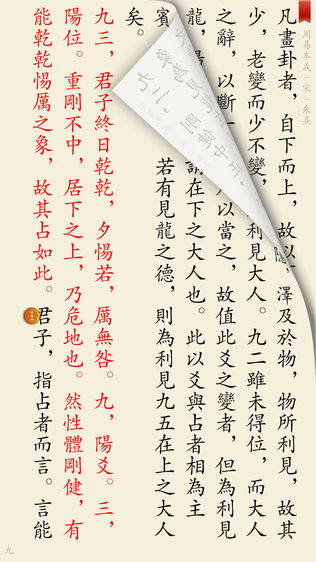 周易本義﹣宋﹣朱熹
凡畫卦者，自下而上，故以 隱，澤及於物，物所利見，故其
少，老變而少不變， 利見大人。九二雖未得位，而大人
之辭，以斷一 以當之，故值此爻之變者，但為利見
龍， 謂在下之大人也。此以爻與占者相為主
賓 若有見龍之德，則為利見九五在上之大人
矣。
九三，君子終日乾乾，夕惕若，厲無咎。九，陽爻。三，
陽位。重剛不中，居下之上，乃危地也。然性體剛健，有
能乾乾惕厲之象，故其占如此。君子，指占者而言。言能
九